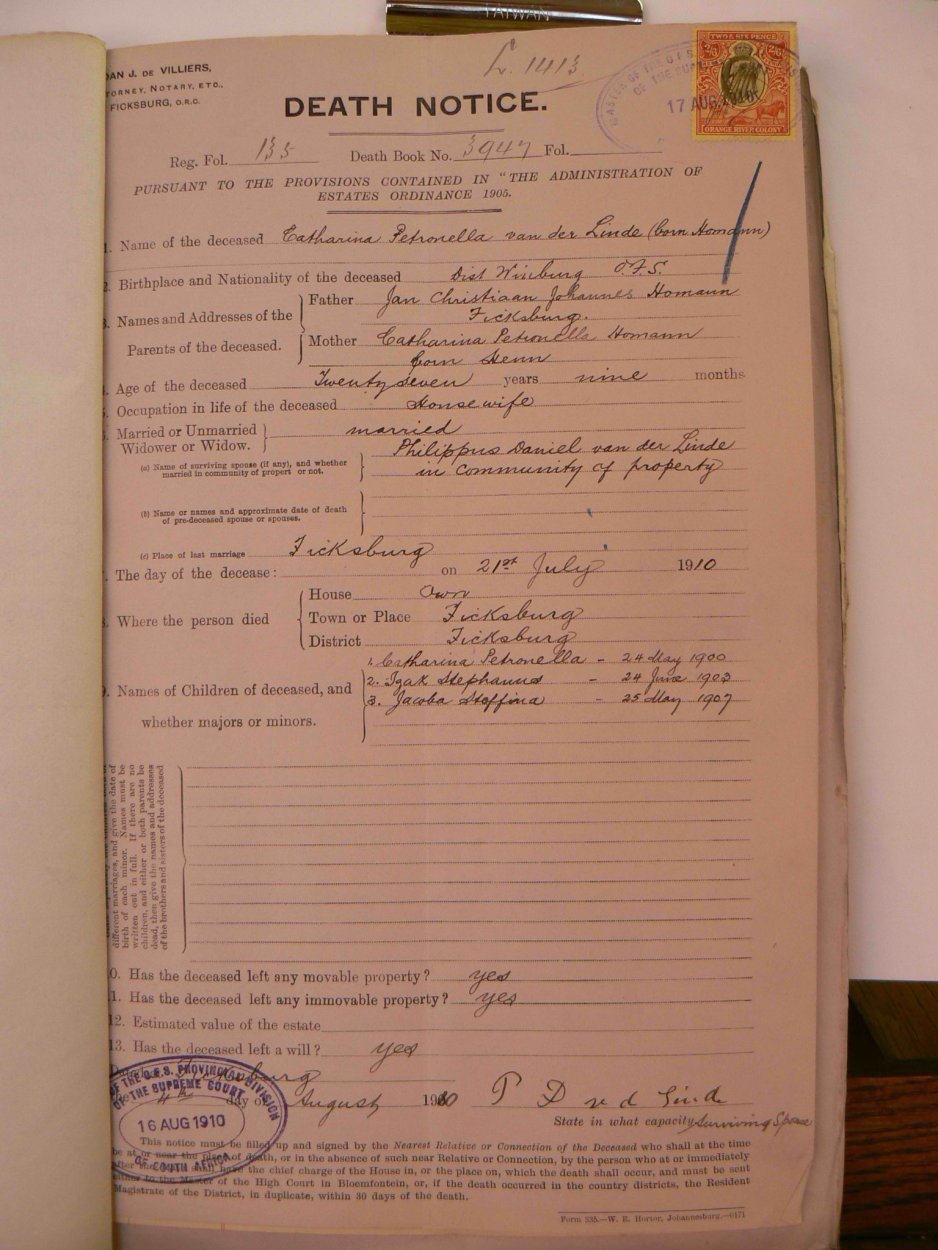 TAIWAN
AN J. DE VILLIERS,
TORNEY, NOTARY, ETC.,
FICKSBURG, O.R.C.
L. 1413
TWO & SIX PENCE
2/6 2/6
ORANGE RIVER COLONY
17 AUG 1910
DEATH NOTICE.
Reg. Fol. 135 Death Book No. 3947 Fol.
PURSUANT TO THE PROVISIONS CONTAINED IN "THE ADMINISTRATION OF
ESTATES ORDINANCE 1905.
1. Name of the deceased Catharina Petronella van der Linde (born Homann)
2. Birthplace and Nationality of the deceased Dist Winburg O.F.S.
3. Names and Addresses of the Parents of the deceased.
Father Jan Christiaan Johannes Homann
Ficksburg.
Mother Catharina Petronella Homann
born Henn
Age of the deceased Twenty seven years nine months
Occupation in life of the deceased Housewife
Married or Unmarried Widower or Widow. married
(a) Name of surviving spouse (if any), and whether married in community of propert or not.
Philippus Daniel van der Linde
in community of property
(b) Name or names and approximate date of death of pre-deceased spouse or spouses.
(c) Place of last marriage Ficksburg
The day of the decease: on 21st July 1910
Where the person died
House Own
Town or Place Ficksburg
District Ficksburg
9. Names of Children of deceased, and whether majors or minors.
1. Catharina Petronella - 24 May 1900
2. Izak Stephanus - 24 June 1903
3. Jacoba Steffina - 25 May 1907
different marriages, and give the date of
birth of each minor. Names must be
written out in full. If there are no
children, and either or both parents be
dead, then give the names and addresses
of the brothers and sisters of the deceased
0. Has the deceased left any movable property? yes
1. Has the deceased left any immovable property? yes
12. Estimated value of the estate
13. Has the deceased left a will? yes
Ficksburg
4th day of August 1910 P D v d Linde
State in what capacity Surviving Spouse
OF THE O.F.S. PROVINCIAL DIVISION
OF THE SUPREME COURT
16 AUG 1910
OF SOUTH AFRICA
This notice must be filled up and signed by the Nearest Relative or Connection of the Deceased who shall at the time
be at or near the place of death, or in the absence of such near Relative or Connection, by the person who at or immediately
after the death shall have the chief charge of the House in, or the place on, which the death shall occur, and must be sent
either to the Master of the High Court in Bloemfontein, or, if the death occurred in the country districts, the Resident
Magistrate of the District, in duplicate, within 30 days of the death.
Form 335.—W. E. Hortor, Johannesburg.—6171